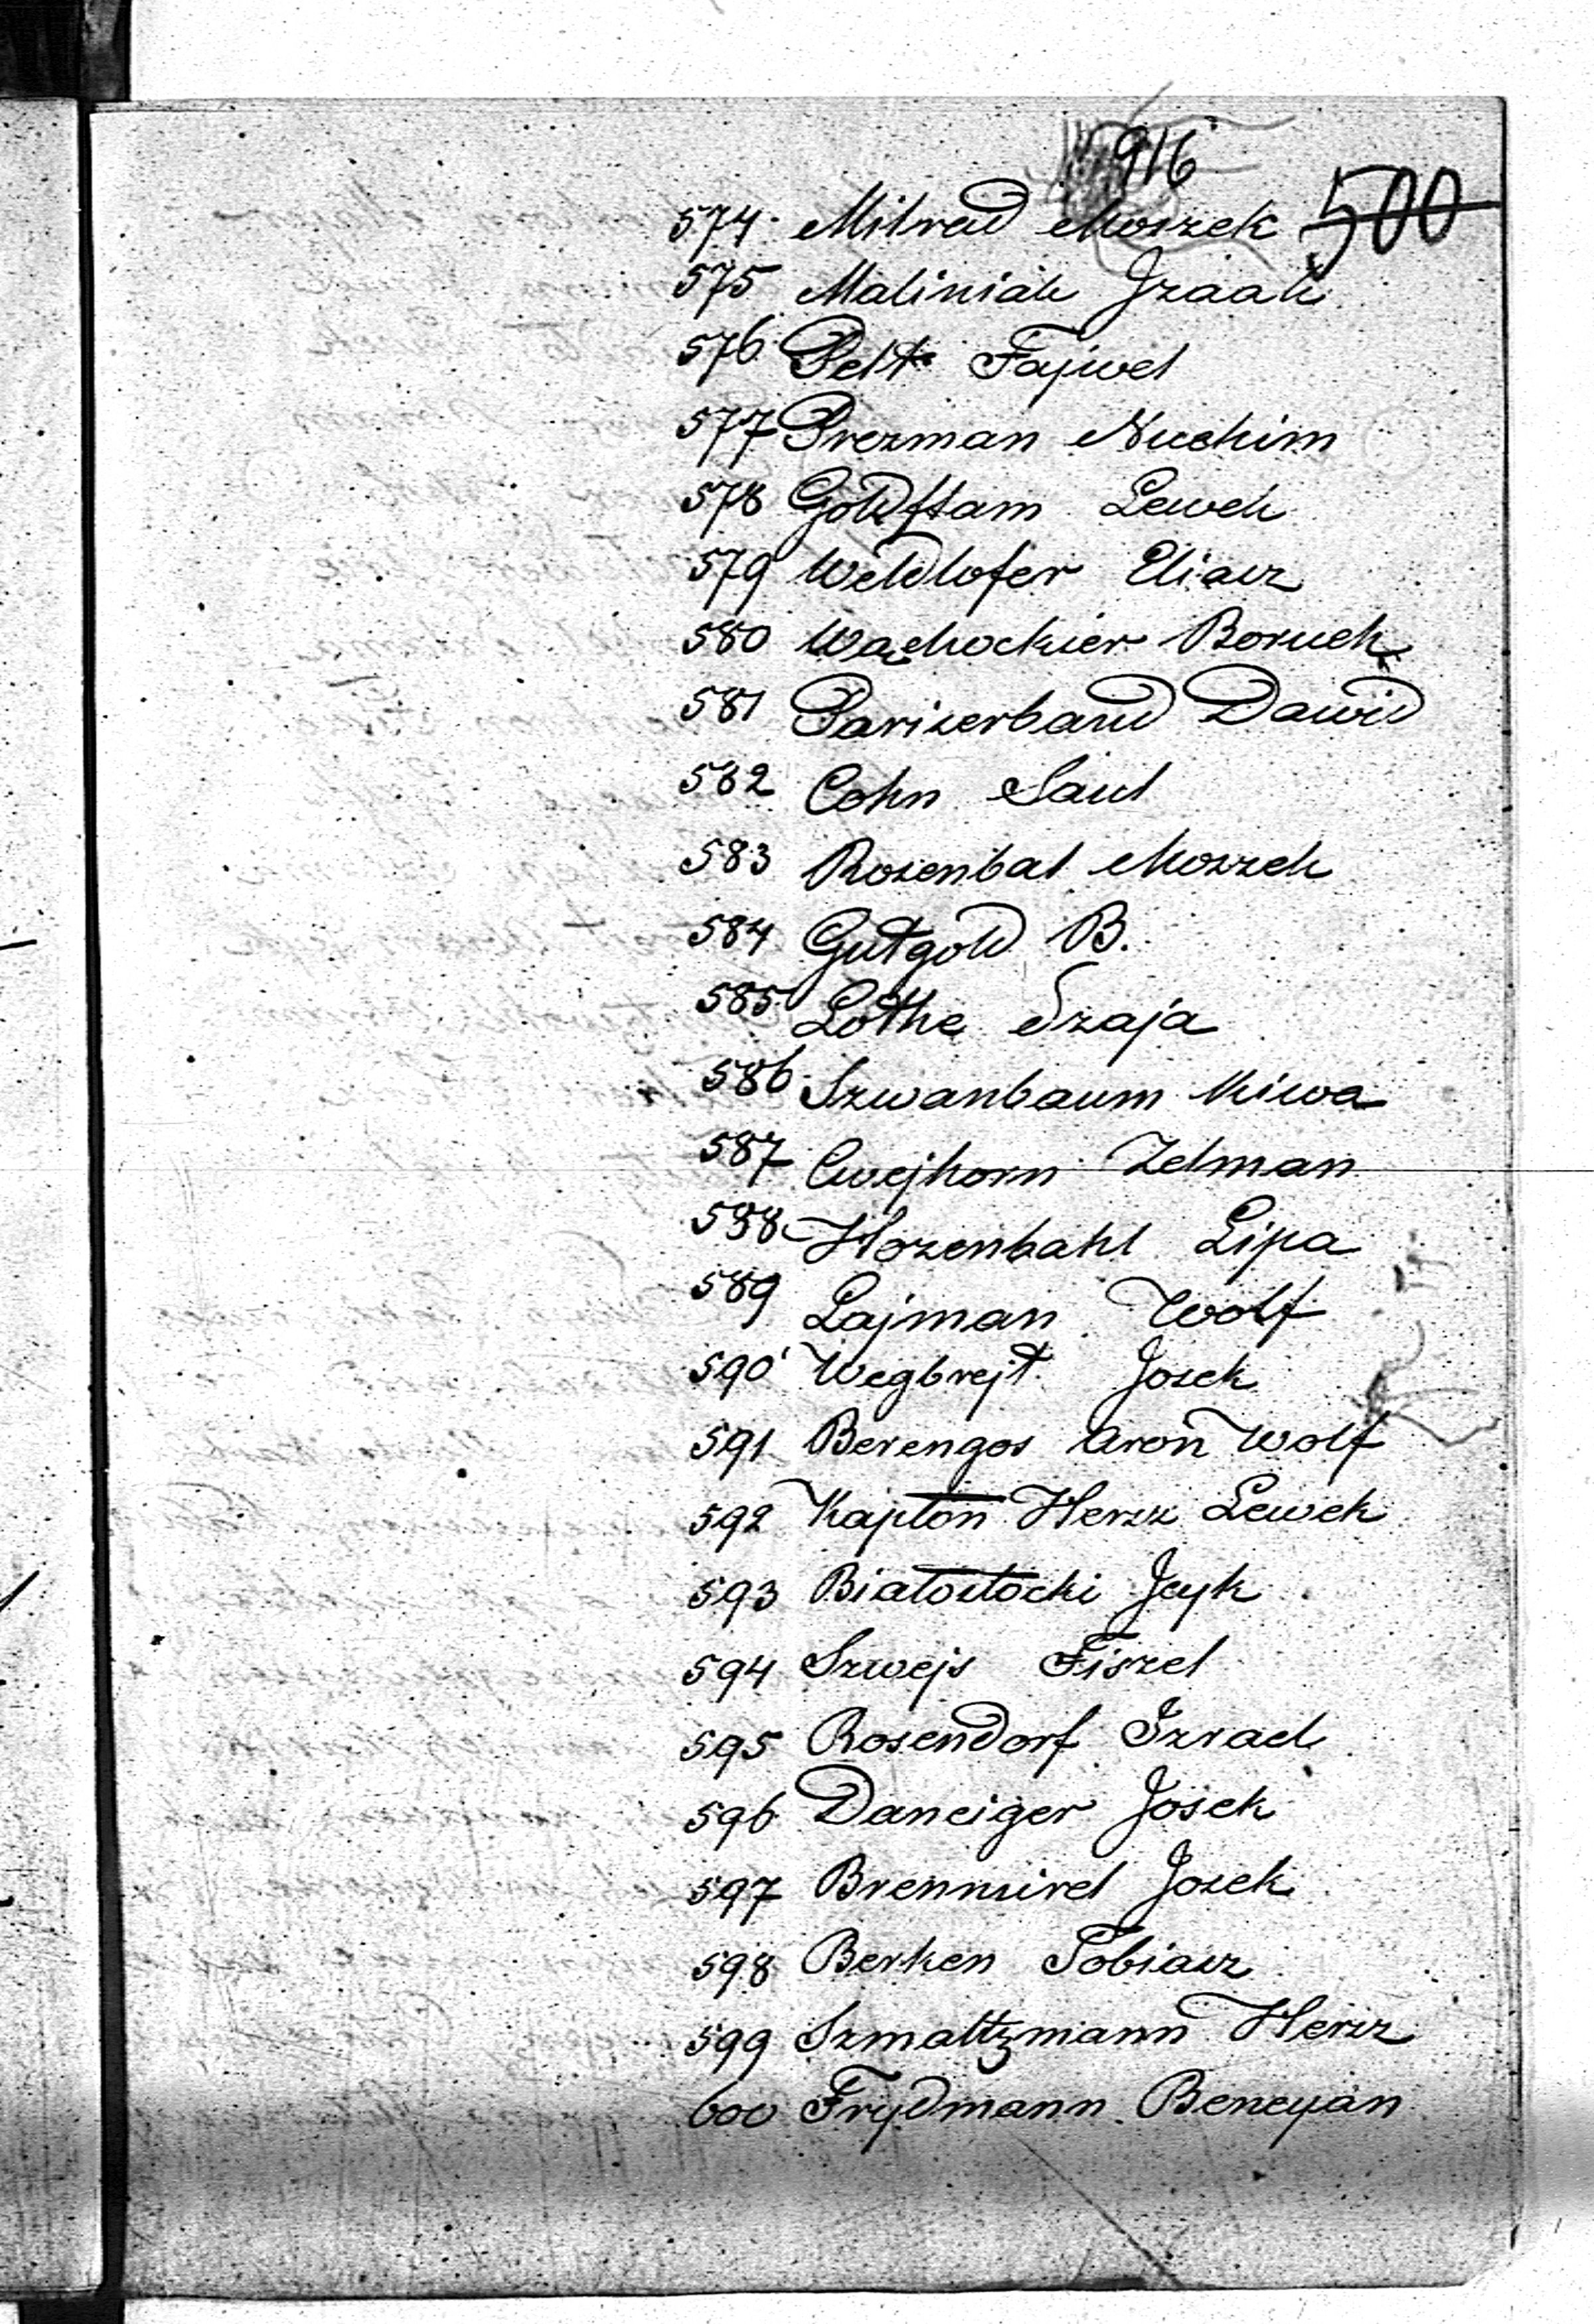 916
500
574. Milrad Moszek
575 Maliniak Izaak
576 Pelt Fajwel
577 Prezman Nuchim
578 Goldflam Lewek
579 Weldlofer Eliasz
580 Wachockier Boruch
581 Parizerband Dawid
582 Cohn Saul
583 Rosenbal Moszek
584 Gutgold B.
585 Lothe Szaja
586 Szwanbaum Kiwa
587 Cwejhorn Zelman
588 Hozenbahl Lipa
589 Lajman Wolf
590 Wegbrejt Josek
591 Berengos Aron Wolf
592 Kapłon Hersz Lewek
593 Białostocki Icyk
594 Szwejs Fiszel
595 Rosendorf Izrael
596 Danciger Josek
597 Brenmirel Josek
598 Berken Tobiasz
599 Szmaltzmann Hersz
600 Frydmann Bencyan